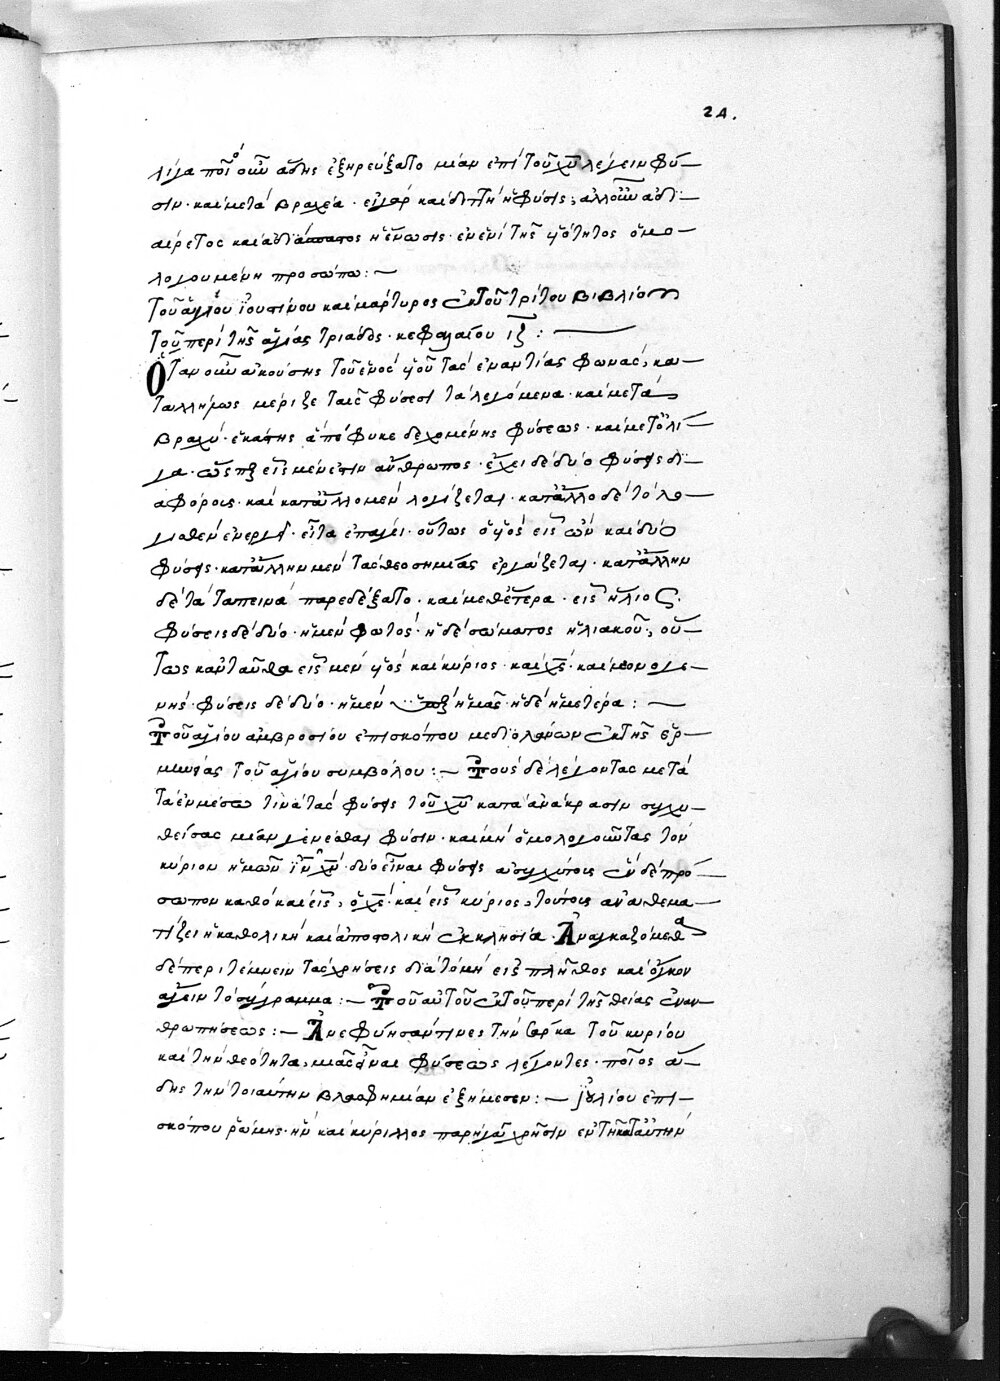 24.
λίγα ποῖος οὖν ἅδης ἐξηρεύξατο μίαν ἐπὶ τοῦ χυ λέγειν φύ-
σιν · καὶ μετὰ βραχέα · εἰ γὰρ καὶ διττὴ ἡ φύσις, ἀλλ' οὖν ἀδι-
αίρετος καὶ ἀδιάσπαστος ἡ ἕνωσις · ἐν ἑνὶ τῆς υἱότητος ὁμο-
λογουμένη προσώπω : -
Τοῦ ἁγίου ἰουστίνου καὶ μάρτυρος ἐκ τοῦ τρίτου βιβλίου
τοῦ περὶ τῆς ἁγίας τριάδος · κεφαλαίου ιζ : -
Ὅταν οὖν ἀκούσης τοῦ ἑνὸς υἱοῦ τὰς ἐναντίας φωνὰς, κα-
ταλλήλως μέριζε ταῖς φύσεσι τὰ λεγόμενα · καὶ μετὰ
βραχύ · ἑκάστης ἀπέφυκε δεχομένης φύσεως · καὶ μετ' ὀλί-
γα · ὥσπερ εἷς μέν ἐστιν ἄνθρωπος · ἔχει δὲ δύο φύσεις δι-
αφόρους · καὶ κατ' ἄλλο μὲν λογίζεται · κατ' ἄλλο δὲ τὸ λο-
γισθὲν ἐνεργεῖ · εἶτα ἐπάγει · οὕτως ὁ υἱὸς εἷς ὢν καὶ δύο
φύσεις · κατ' ἄλλην μὲν τὰς θεοσημίας ἐργάζεται · κατ' ἄλλην
δὲ τὰ ταπεινὰ παρεδέξατο · καὶ μεθ' ἕτερα · εἷς ἥλιος ·
φύσεις δὲ δύο · ἡ μὲν φωτὸς · ἡ δὲ σώματος ἡλιακοῦ, οὕ-
τως κἀνταῦθα εἷς μὲν υἱὸς καὶ κύριος · καὶ χς · καὶ μονογε-
νής · φύσεις δὲ δύο · ἡ μὲν ὑπὲρ ἡμᾶς · ἡ δὲ ἡμετέρα : -
Τοῦ ἁγίου ἀμβροσίου ἐπισκόπου μεδιολάνων ἐκ τῆς ἑρ-
μηνείας τοῦ ἁγίου συμβόλου : - Τοὺς δὲ λέγοντας μετὰ
τὰ ἐν μέσω τινὰ τὰς φύσεις τοῦ χυ κατὰ ἀνάκρασιν συγχυ-
θείσας μίαν γενέσθαι φύσιν · καὶ μὴ ὁμολογοῦντας τὸν
κύριον ἡμῶν ιν χν · δύο εἶναι φύσεις ἀσυγχύτους ἓν δὲ πρό-
σωπον καθὸ καὶ εἷς, ὁ χς · καὶ εἷς κύριος, τούτους ἀναθεμα-
τίζει ἡ καθολικὴ καὶ ἀποστολικὴ ἐκκλησία · Ἀναγκαζόμεθα
δὲ περιτέμνειν τὰς χρήσεις διὰ τὸ μὴ εἰς πλῆθος καὶ ὄγκον
ἄγειν τὸ σύγραμμα : - Τοῦ αὐτοῦ ἐκ τοῦ περὶ τῆς θείας ἐναν-
θρωπήσεως : - Ἀνεφύησάν τινες τὴν σάρκα τοῦ κυρίου
καὶ τὴν θεότητα, μιᾶς εἶναι φύσεως λέγοντες · ποῖος ἅ-
δης τὴν τοιαύτην βλασφημίαν ἐξήμεσεν : - Ἰουλίου ἐπι-
σκόπου ῥώμης · ἣν καὶ κύριλλος παρήγαγε χρῆσιν ἐν τῆ κατ' αὐτὴν